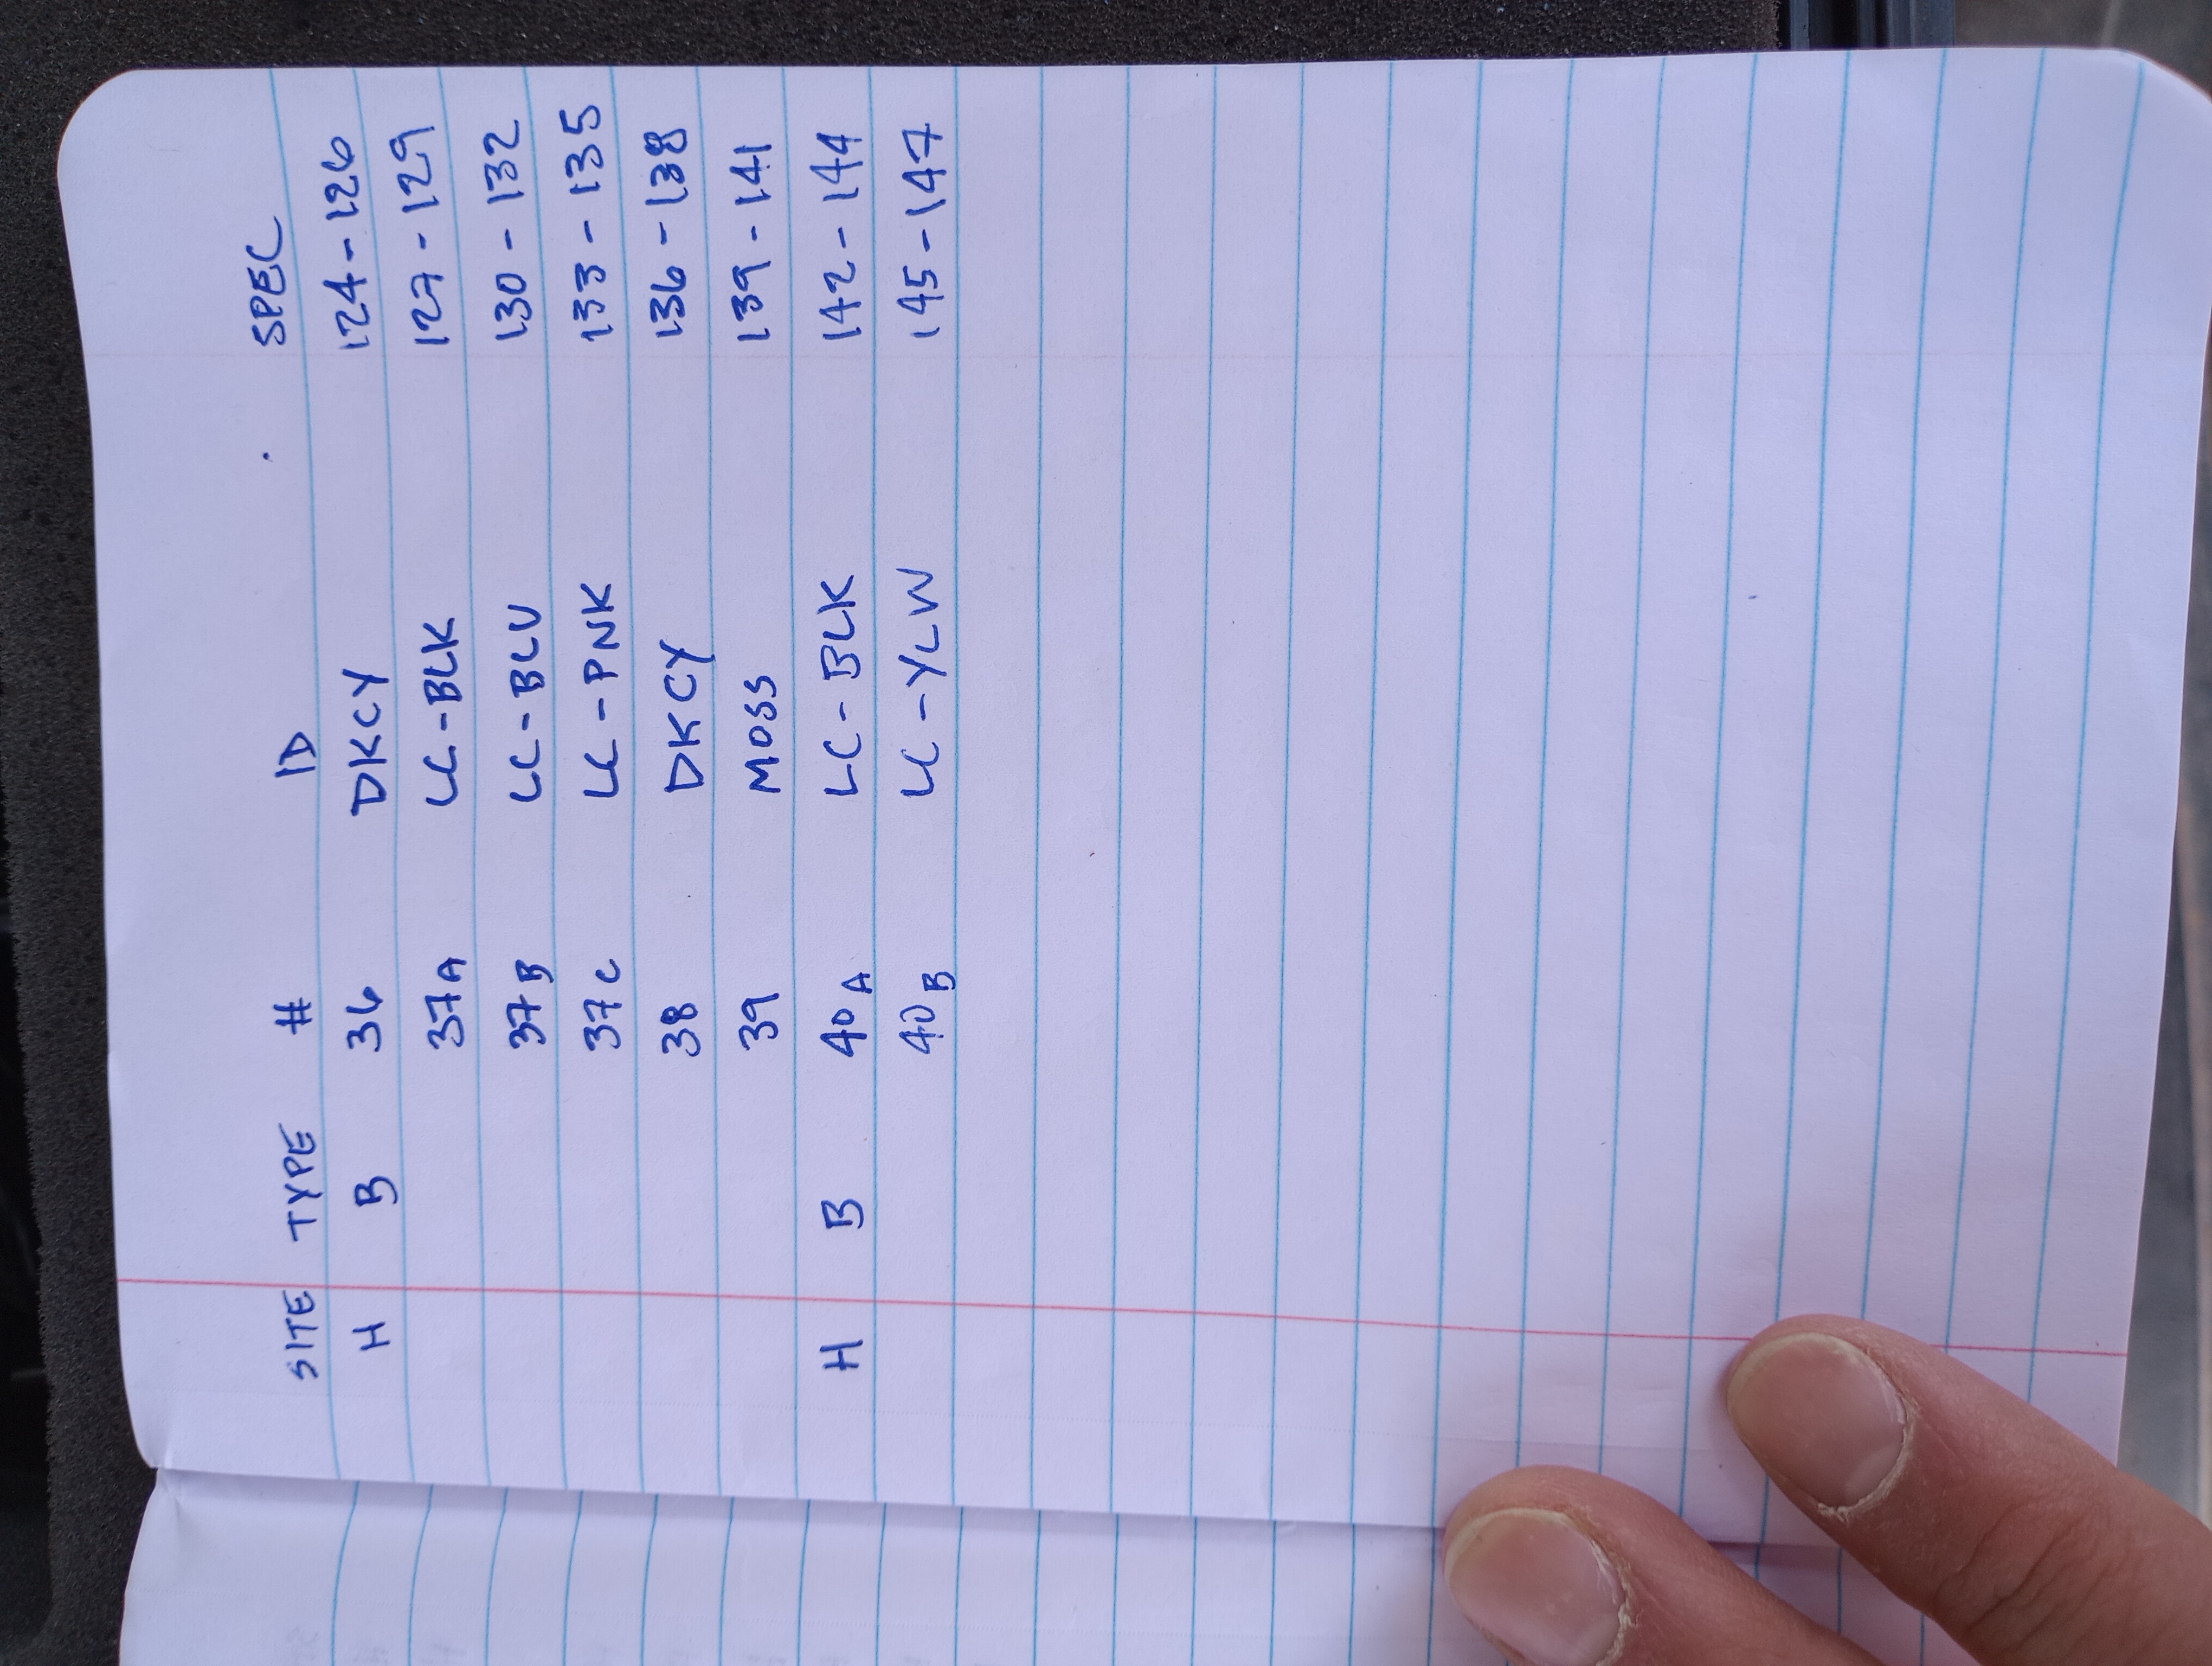 SITE TYPE # ID SPEC
H B 36 DKCY 124-126
37A LC-BLK 127-129
37B LC-BLU 130-132
37C LC-PNK 133-135
38 DKCY 136-138
39 MOSS 139-141
H B 40A LC-BLK 142-144
40B LC-YLW 145-147